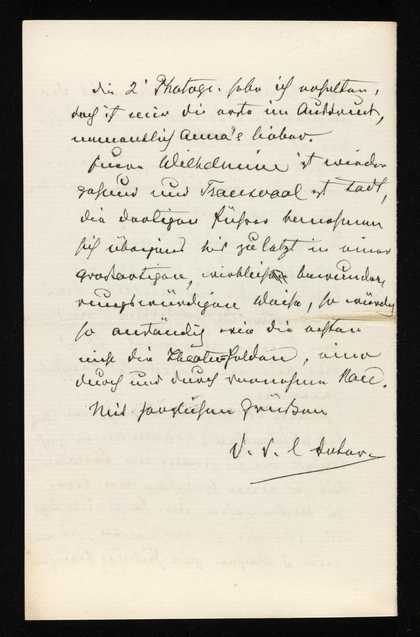 die 2ᵗ Photogr. habe ich erhalten,
doch ist mir die erste im Ausdruck,
namentlich Anna's lieber.
Euere Wilhelmine ist wieder
gesund und Transvaal ist todt,
die dortigen Führer benehmen
sich übrigens bis zuletzt in einer
großartigen, wirklich bewunder-
rungswürdigen Weise, so
so anständig wie die echten
nicht die Theater-Helden, eine
durch und durch vornehme Race.
Mit herzlichen Grüßen